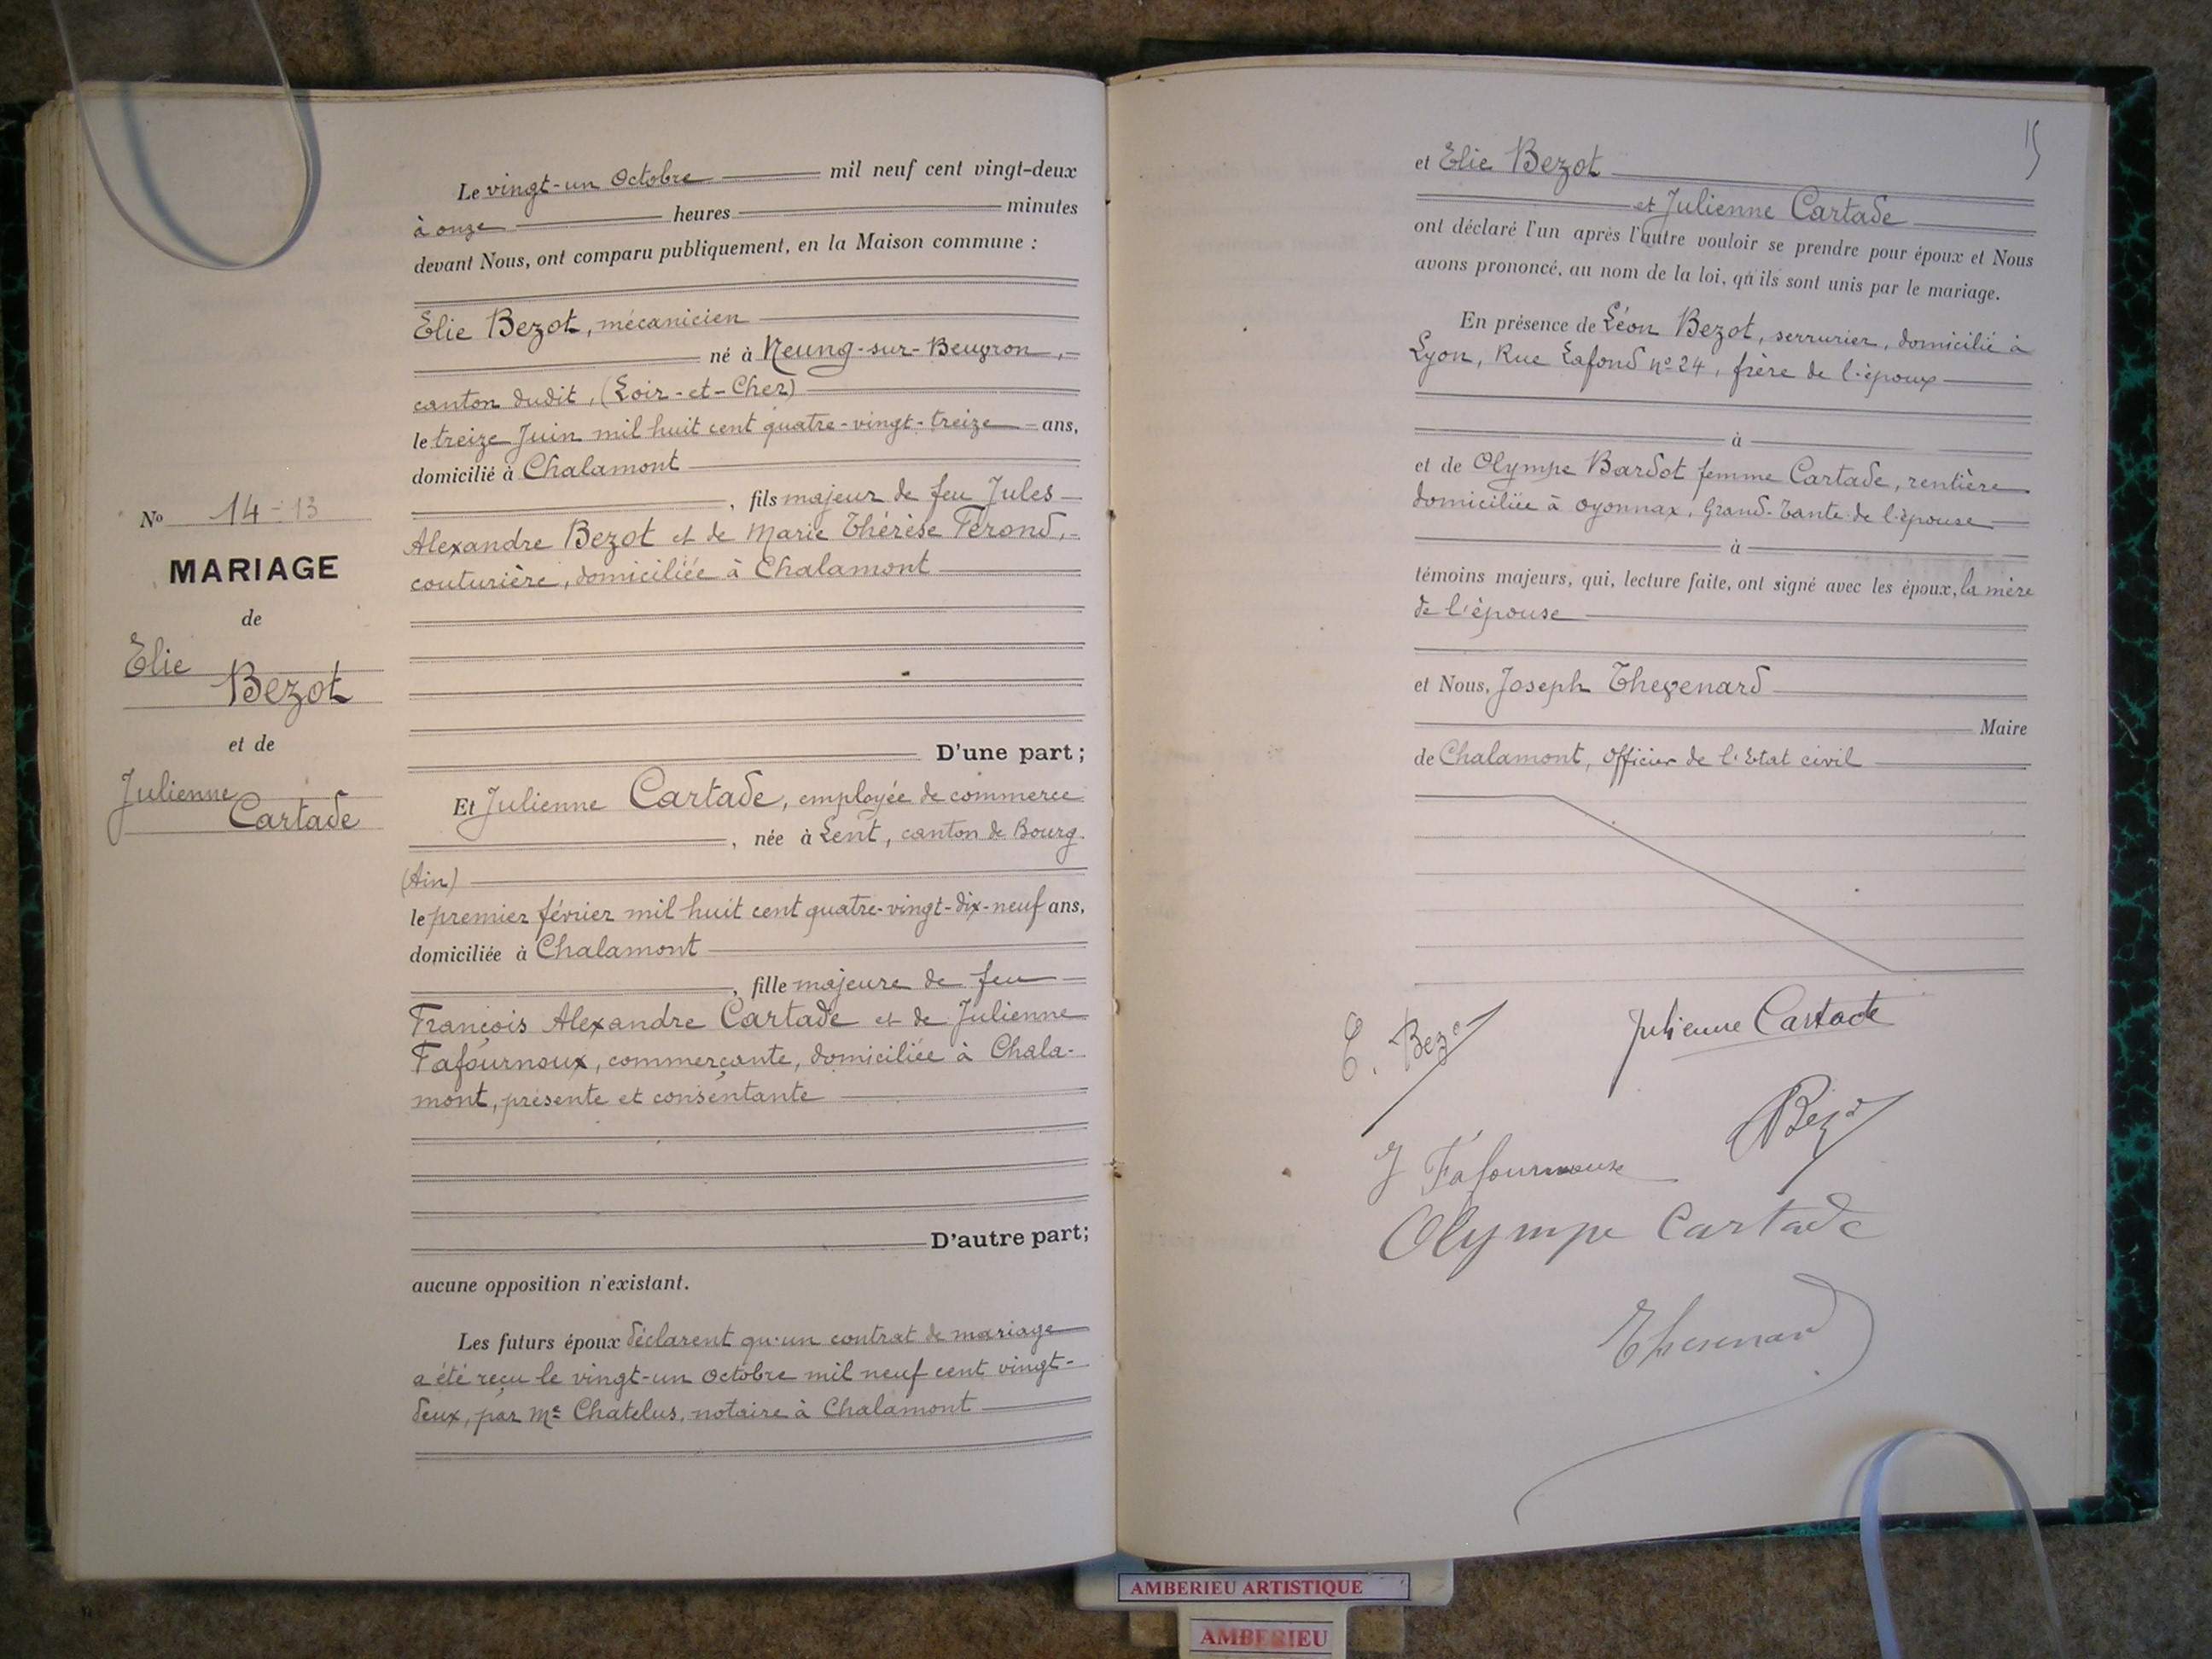 Le vingt-un Octobre mil neuf cent vingt-deux
à onze heures minutes
devant Nous, ont comparu publiquement, en la Maison commune :
Elie Bezot, mécanicien
né à Neung-sur-Beuvron,
canton dudit, (Loir-et-Cher)
le treize Juin mil huit cent quatre-vingt-treize ans,
domicilié à Chalamont
, fils majeur de feu Jules
Alexandre Bezot et de Marie Thérèse Ferond,
couturière, domiciliée à Chalamont
No 14-13
MARIAGE
de
Elie
Bezot
et de
Julienne
Cartade
D'une part;
Et Julienne Cartade, employée de commerce
, née à Lent, canton de Bourg
(Ain)
le premier février mil huit cent quatre-vingt-dix-neuf ans,
domiciliée à Chalamont
, fille majeure de feu
François Alexandre Cartade et de Julienne
Fafournoux, commerçante, domiciliée à Chala-
mont, présente et consentante
D'autre part;
aucune opposition n'existant.
Les futurs époux déclarent qu'un contrat de mariage
a été reçu le vingt-un Octobre mil neuf cent vingt-
deux, par Me Chatelus, notaire à Chalamont
15
et Elie Bezot
et Julienne Cartade
ont déclaré l'un après l'autre vouloir se prendre pour époux et Nous
avons prononcé, au nom de la loi, qu'ils sont unis par le mariage.
En présence de Léon Bezot, serrurier, domicilié à
Lyon, Rue Lafond no 24, frère de l'époux
à
et de Olympe Bardot femme Cartade, rentière
domiciliée à Oyonnax, Grand-Tante de l'épouse
à
témoins majeurs, qui, lecture faite, ont signé avec les époux, la mère
de l'épouse
et Nous, Joseph Thevenard
Maire
de Chalamont, Officier de l'Etat civil
E. Bezot
Julienne Cartade
Bezot
J Fafournoux
Olympe Cartade
Thevenard
AMBERIEU ARTISTIQUE
AMBERIEU